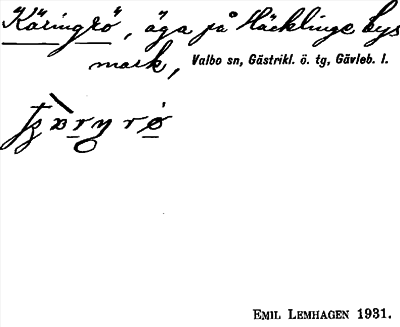 Käringrö, äga på Häcklinge bys
mark, Valbo sn, Gästrikl. ö. tg, Gävleb. l.
EMIL LEMHAGEN 1931.